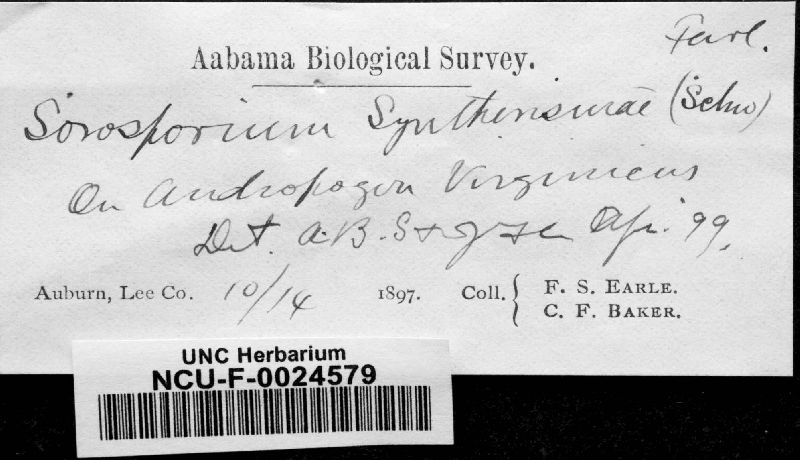 Farl.
Aabama Biological Survey.
Sorosporium Syntherismae (Schw)
On Andropogon Virginicus
Det. A. B. S Apr. '99.
Auburn, Lee Co. 10/14 1897. Coll. { F. S. EARLE.
C. F. BAKER.
UNC Herbarium
NCU-F-0024579